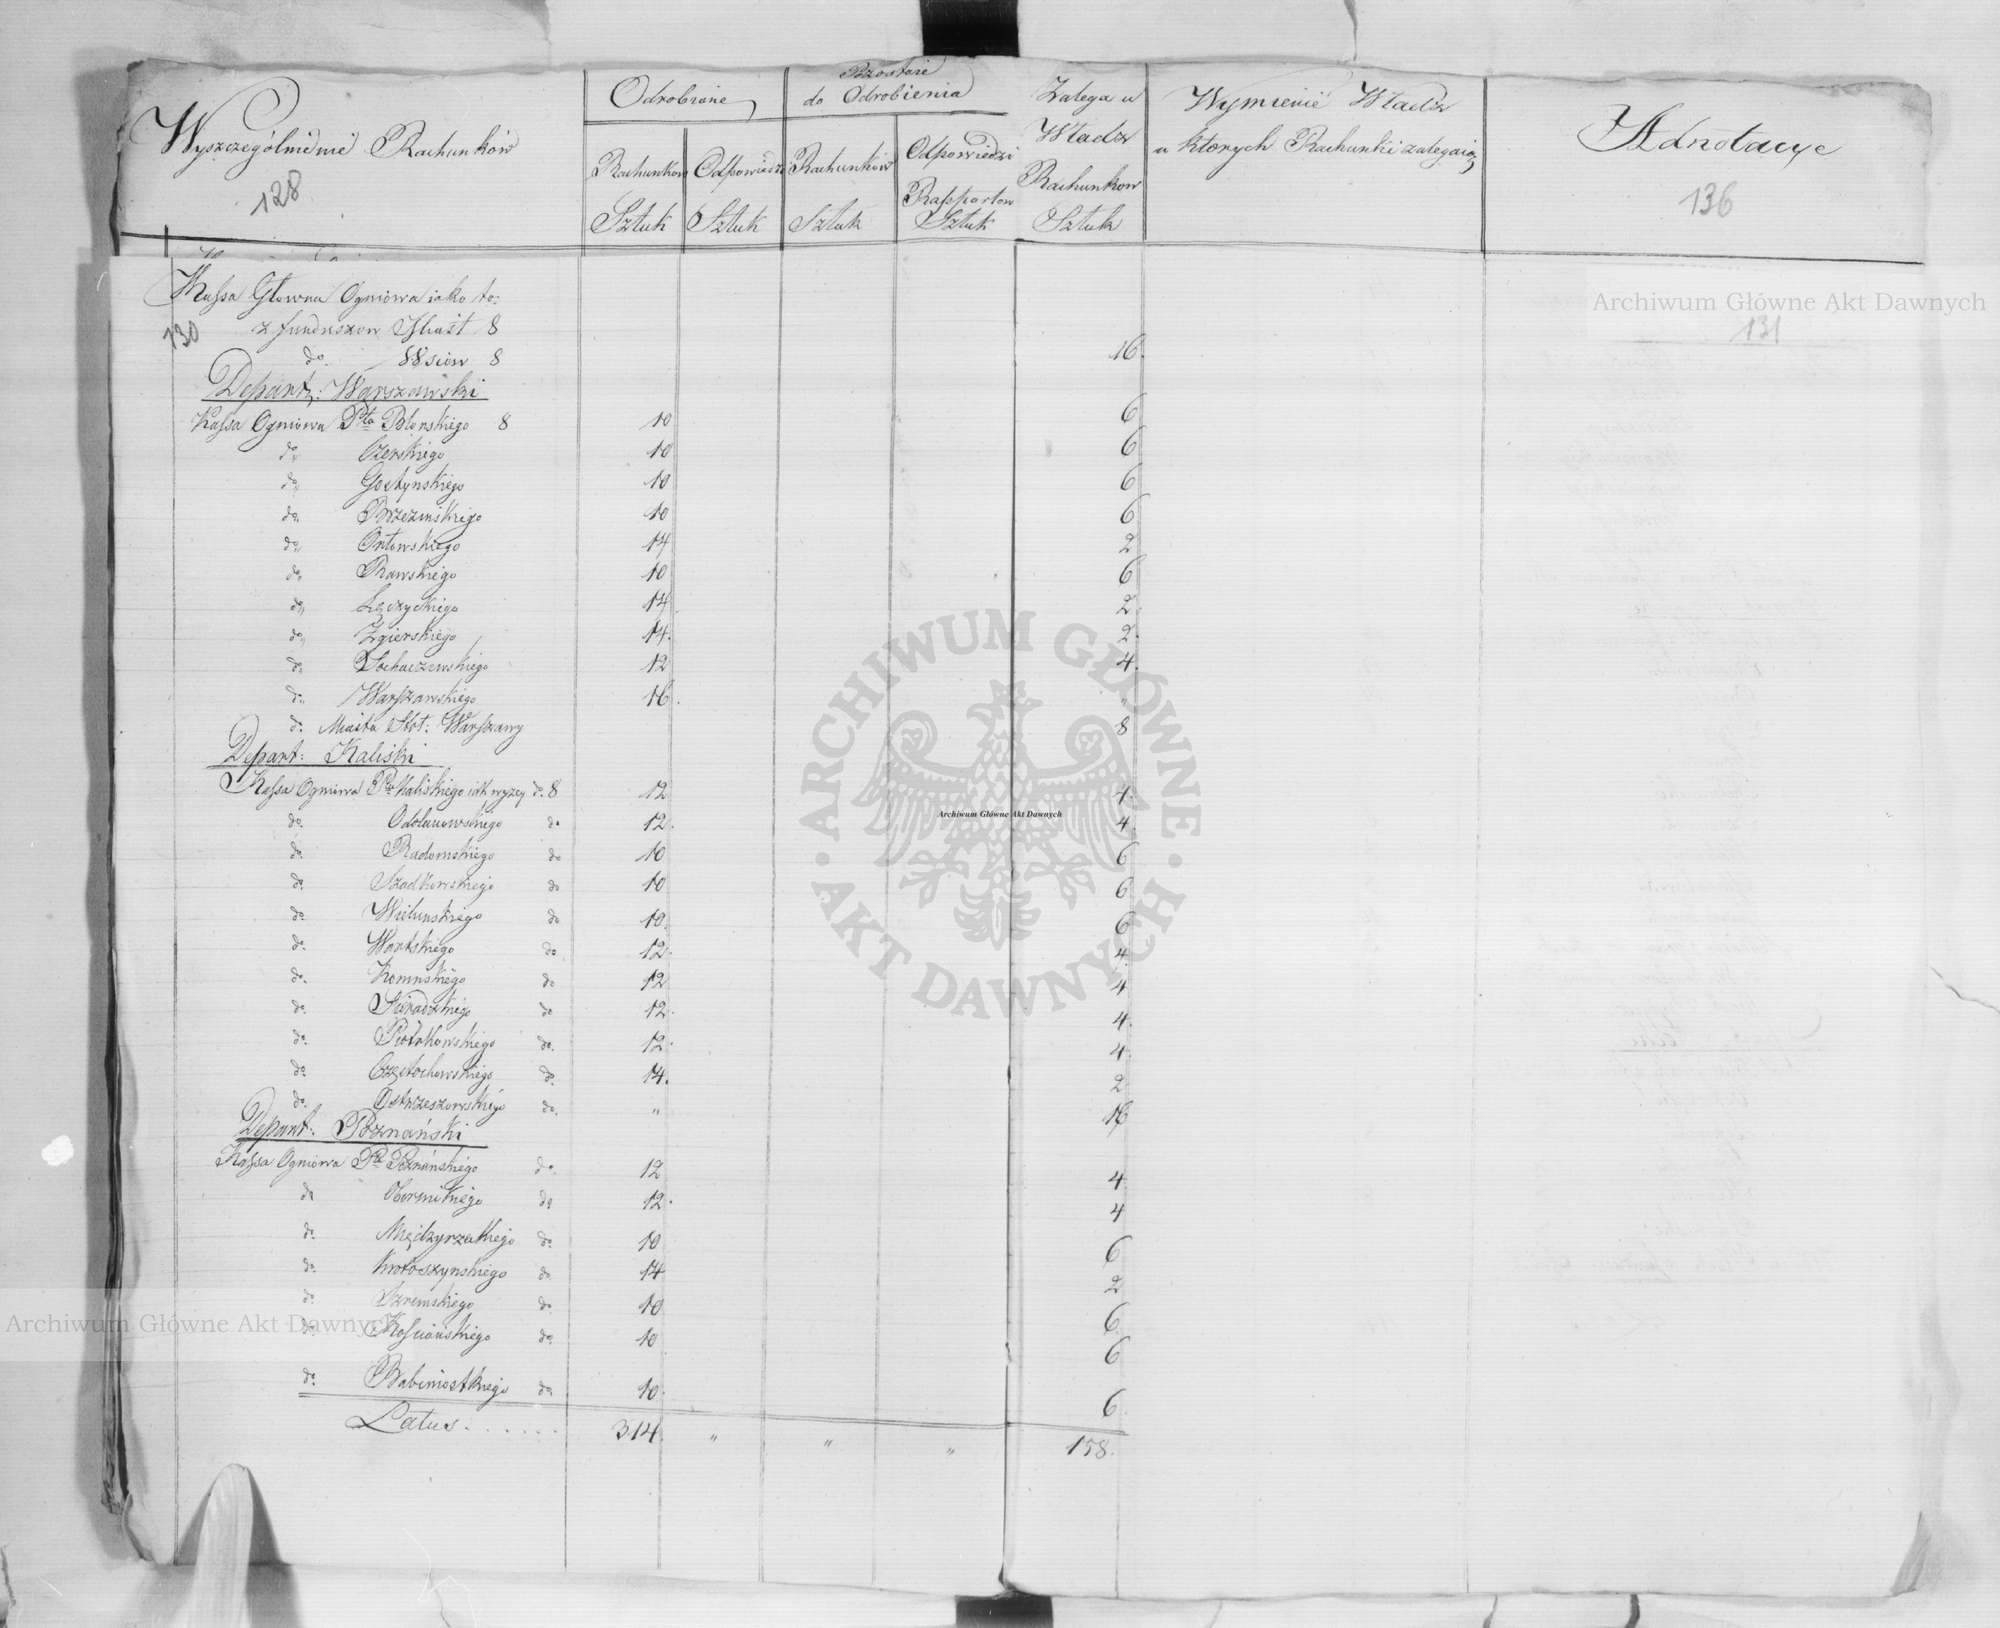 Wyszczególnienie Rachunków
128
Odrobione
Rachunkow Sztuk
Odpowiedzi Sztuk
Pozostaie
do Odrobienia
Rachunków Sztuk
Odpowiedzi
Rapportow
Sztuk
Zalega u
Władz
Rachunkow
Sztuk
Wymienie Władz
u ktorych Rachunki zalegaią
Adnotacye
136
Kassa Głowna Ogniowa iako to:
130 z funduszow Miast 8
do. Wsiow 8 16.
131
Depart: Warszawski
Kassa Ogniowa Ptu Błonskiego 8 10 6
do Czerskiego 10 6
do Gostynskiego 10 6
do Brzezinskiego 10 6
do Orłowskiego 14 2
do Rawskiego 10 6
do Łęczyckiego 14 2
do Zgierskiego 14. 2.
do Sochaczewskiego 12 4.
do Warszawskiego 16. "
do. Miasta Stoł: Warszawy 8
Depart: Kaliski
Kassa Ogniowa Ptu Kaliskiego iak wyzey do. 8 12 4.
do. Odolanowskiego do 12. 4.
do. Radomskiego do 10 6
do. Szadkowskiego do 10 6
do. Wielunskiego do 10. 6
do. Wartskiego do 12. 4.
do. Koninskiego do 12 4
do. Sieradzkiego do 12. 4.
do. Piotrkowskiego do. 12. 4
do. Częstochowskiego do. 14. 2
do. Ostrzeszowskiego do. " 16
Depart: Poznański
Kassa Ogniowa Ptu Poznańskiego do. 12 4
do Obornikiego do 12. 4
do. Międzyrzeckiego do. 10 6
do. Krotoszynskiego do 14 2
do. Szremskiego do. 10 6
do. Kościańskiego do. 10 6
do. Babimostkiego do. 10. 6
Latus . . . . . . 314. " " " 158.
Archiwum Główne Akt Dawnych
Archiwum Główne Akt Dawnych
Archiwum Główne Akt Dawnych
ARCHIWUM GŁÓWNE · AKT DAWNYCH ·